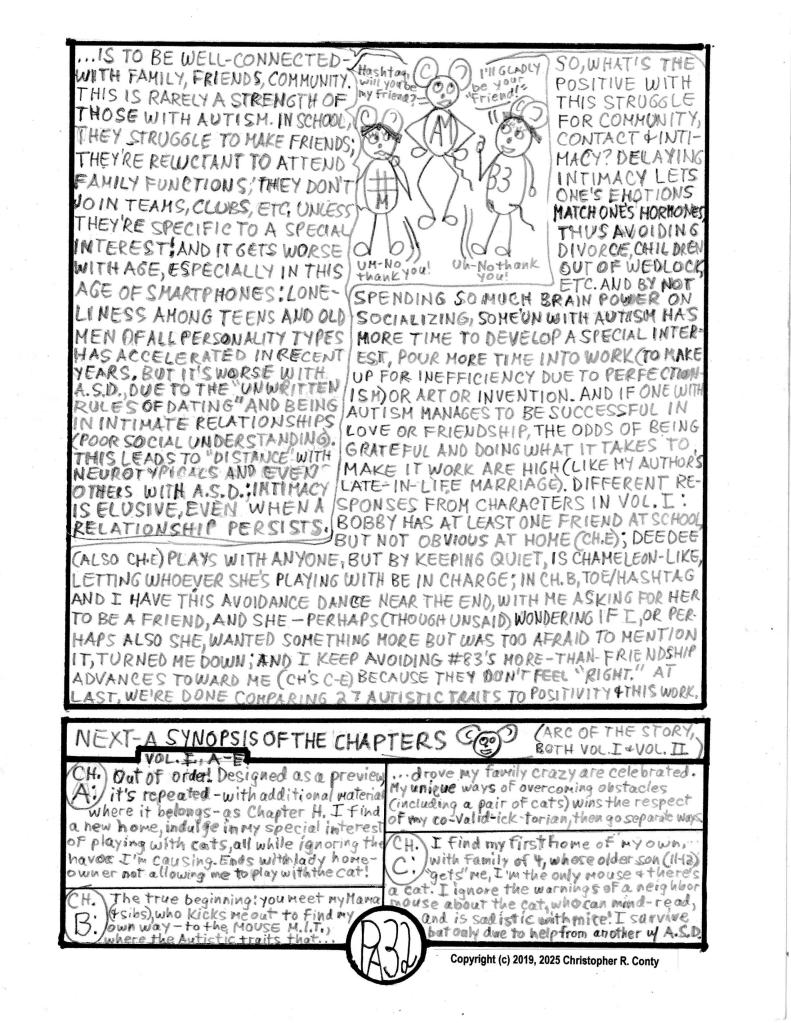 ...IS TO BE WELL-CONNECTED-
WITH FAMILY, FRIENDS, COMMUNITY.
THIS IS RARELY A STRENGTH OF
THOSE WITH AUTISM. IN SCHOOL,
THEY STRUGGLE TO MAKE FRIENDS;
THEY'RE RELUCTANT TO ATTEND
FAMILY FUNCTIONS; THEY DON'T
JOIN TEAMS, CLUBS, ETC, UNLESS
THEY'RE SPECIFIC TO A SPECIAL
INTEREST! AND IT GETS WORSE
WITH AGE, ESPECIALLY IN THIS
AGE OF SMARTPHONES: LONE-
LINESS AMONG TEENS AND OLD
MEN OF ALL PERSONALITY TYPES
HAS ACCELERATED IN RECENT
YEARS. BUT IT'S WORSE WITH
A.S.D., DUE TO THE "UNWRITTEN
RULES OF DATING" AND BEING
IN INTIMATE RELATIONSHIPS
(POOR SOCIAL UNDERSTANDING).
THIS LEADS TO "DISTANCE" WITH
NEUROTYPICALS AND EVEN
OTHERS WITH A.S.D.; INTIMACY
IS ELUSIVE, EVEN WHEN A
RELATIONSHIP PERSISTS.
Hashtag,
will you be
my friend?
I'll GLADLY
be your
"Friend!"
AM
#
M
83
UM-No
thank you!
Uh-No thank
you!
SO, WHAT'S THE
POSITIVE WITH
THIS STRUGGLE
FOR COMMUNITY,
CONTACT & INTI-
MACY? DELAYING
INTIMACY LETS
ONE'S EMOTIONS
MATCH ONE'S HORMONES,
THUS AVOIDING
DIVORCE, CHILDREN
OUT OF WEDLOCK,
ETC. AND BY NOT
SPENDING SO MUCH BRAIN POWER ON
SOCIALIZING, SOME'UN WITH AUTISM HAS
MORE TIME TO DEVELOP A SPECIAL INTER-
EST, POUR MORE TIME INTO WORK (TO MAKE
UP FOR INEFFICIENCY DUE TO PERFECTION-
ISM) OR ART OR INVENTION. AND IF ONE WITH
AUTISM MANAGES TO BE SUCCESSFUL IN
LOVE OR FRIENDSHIP, THE ODDS OF BEING
GRATEFUL AND DOING WHAT IT TAKES TO
MAKE IT WORK ARE HIGH (LIKE MY AUTHOR'S
LATE-IN-LIFE MARRIAGE). DIFFERENT RE-
SPONSES FROM CHARACTERS IN VOL. I:
BOBBY HAS AT LEAST ONE FRIEND AT SCHOOL,
BUT NOT OBVIOUS AT HOME (CH.E); DEEDEE
(ALSO CH.E) PLAYS WITH ANYONE, BUT BY KEEPING QUIET, IS CHAMELEON-LIKE,
LETTING WHOEVER SHE'S PLAYING WITH BE IN CHARGE; IN CH.B, TOE/HASHTAG
AND I HAVE THIS AVOIDANCE DANCE NEAR THE END, WITH ME ASKING FOR HER
TO BE A FRIEND, AND SHE - PERHAPS (THOUGH UNSAID) WONDERING IF I, OR PER-
HAPS ALSO SHE, WANTED SOMETHING MORE BUT WAS TOO AFRAID TO MENTION
IT, TURNED ME DOWN; AND I KEEP AVOIDING #83'S MORE-THAN-FRIENDSHIP
ADVANCES TOWARD ME (CH'S C-E) BECAUSE THEY DON'T FEEL "RIGHT." AT
LAST, WE'RE DONE COMPARING 27 AUTISTIC TRAITS TO POSITIVITY & THIS WORK.
NEXT-A SYNOPSIS OF THE CHAPTERS
(ARC OF THE STORY,
BOTH VOL. I & VOL. II)
VOL. I, A-E
CH.
A:
Out of order! Designed as a preview,
it's repeated - with additional material
where it belongs - as Chapter H. I find
a new home, indulge in my special interest
of playing with cats, all while ignoring the
havoc I'm causing. Ends with lady home-
owner not allowing me to play with the cat!
CH.
B:
The true beginning! You meet my Mama
(& sibs), who kicks me out to find my
own way - to the MOUSE M.I.T.,
where the Autistic traits that...
...drove my family crazy are celebrated.
My unique ways of overcoming obstacles
(including a pair of cats) wins the respect
of my co-valid-ick-torian, then go separate ways.
CH.
C:
I find my first home of my own,
with family of 4, whose older son (11-12)
"gets" me, I'm the only mouse & there's
a cat. I ignore the warnings of a neighbor
mouse about the cat, who can mind-read,
and is sadistic with mice! I survive
but only due to help from another w/ A.S.D.
PA32
Copyright (c) 2019, 2025 Christopher R. Conty